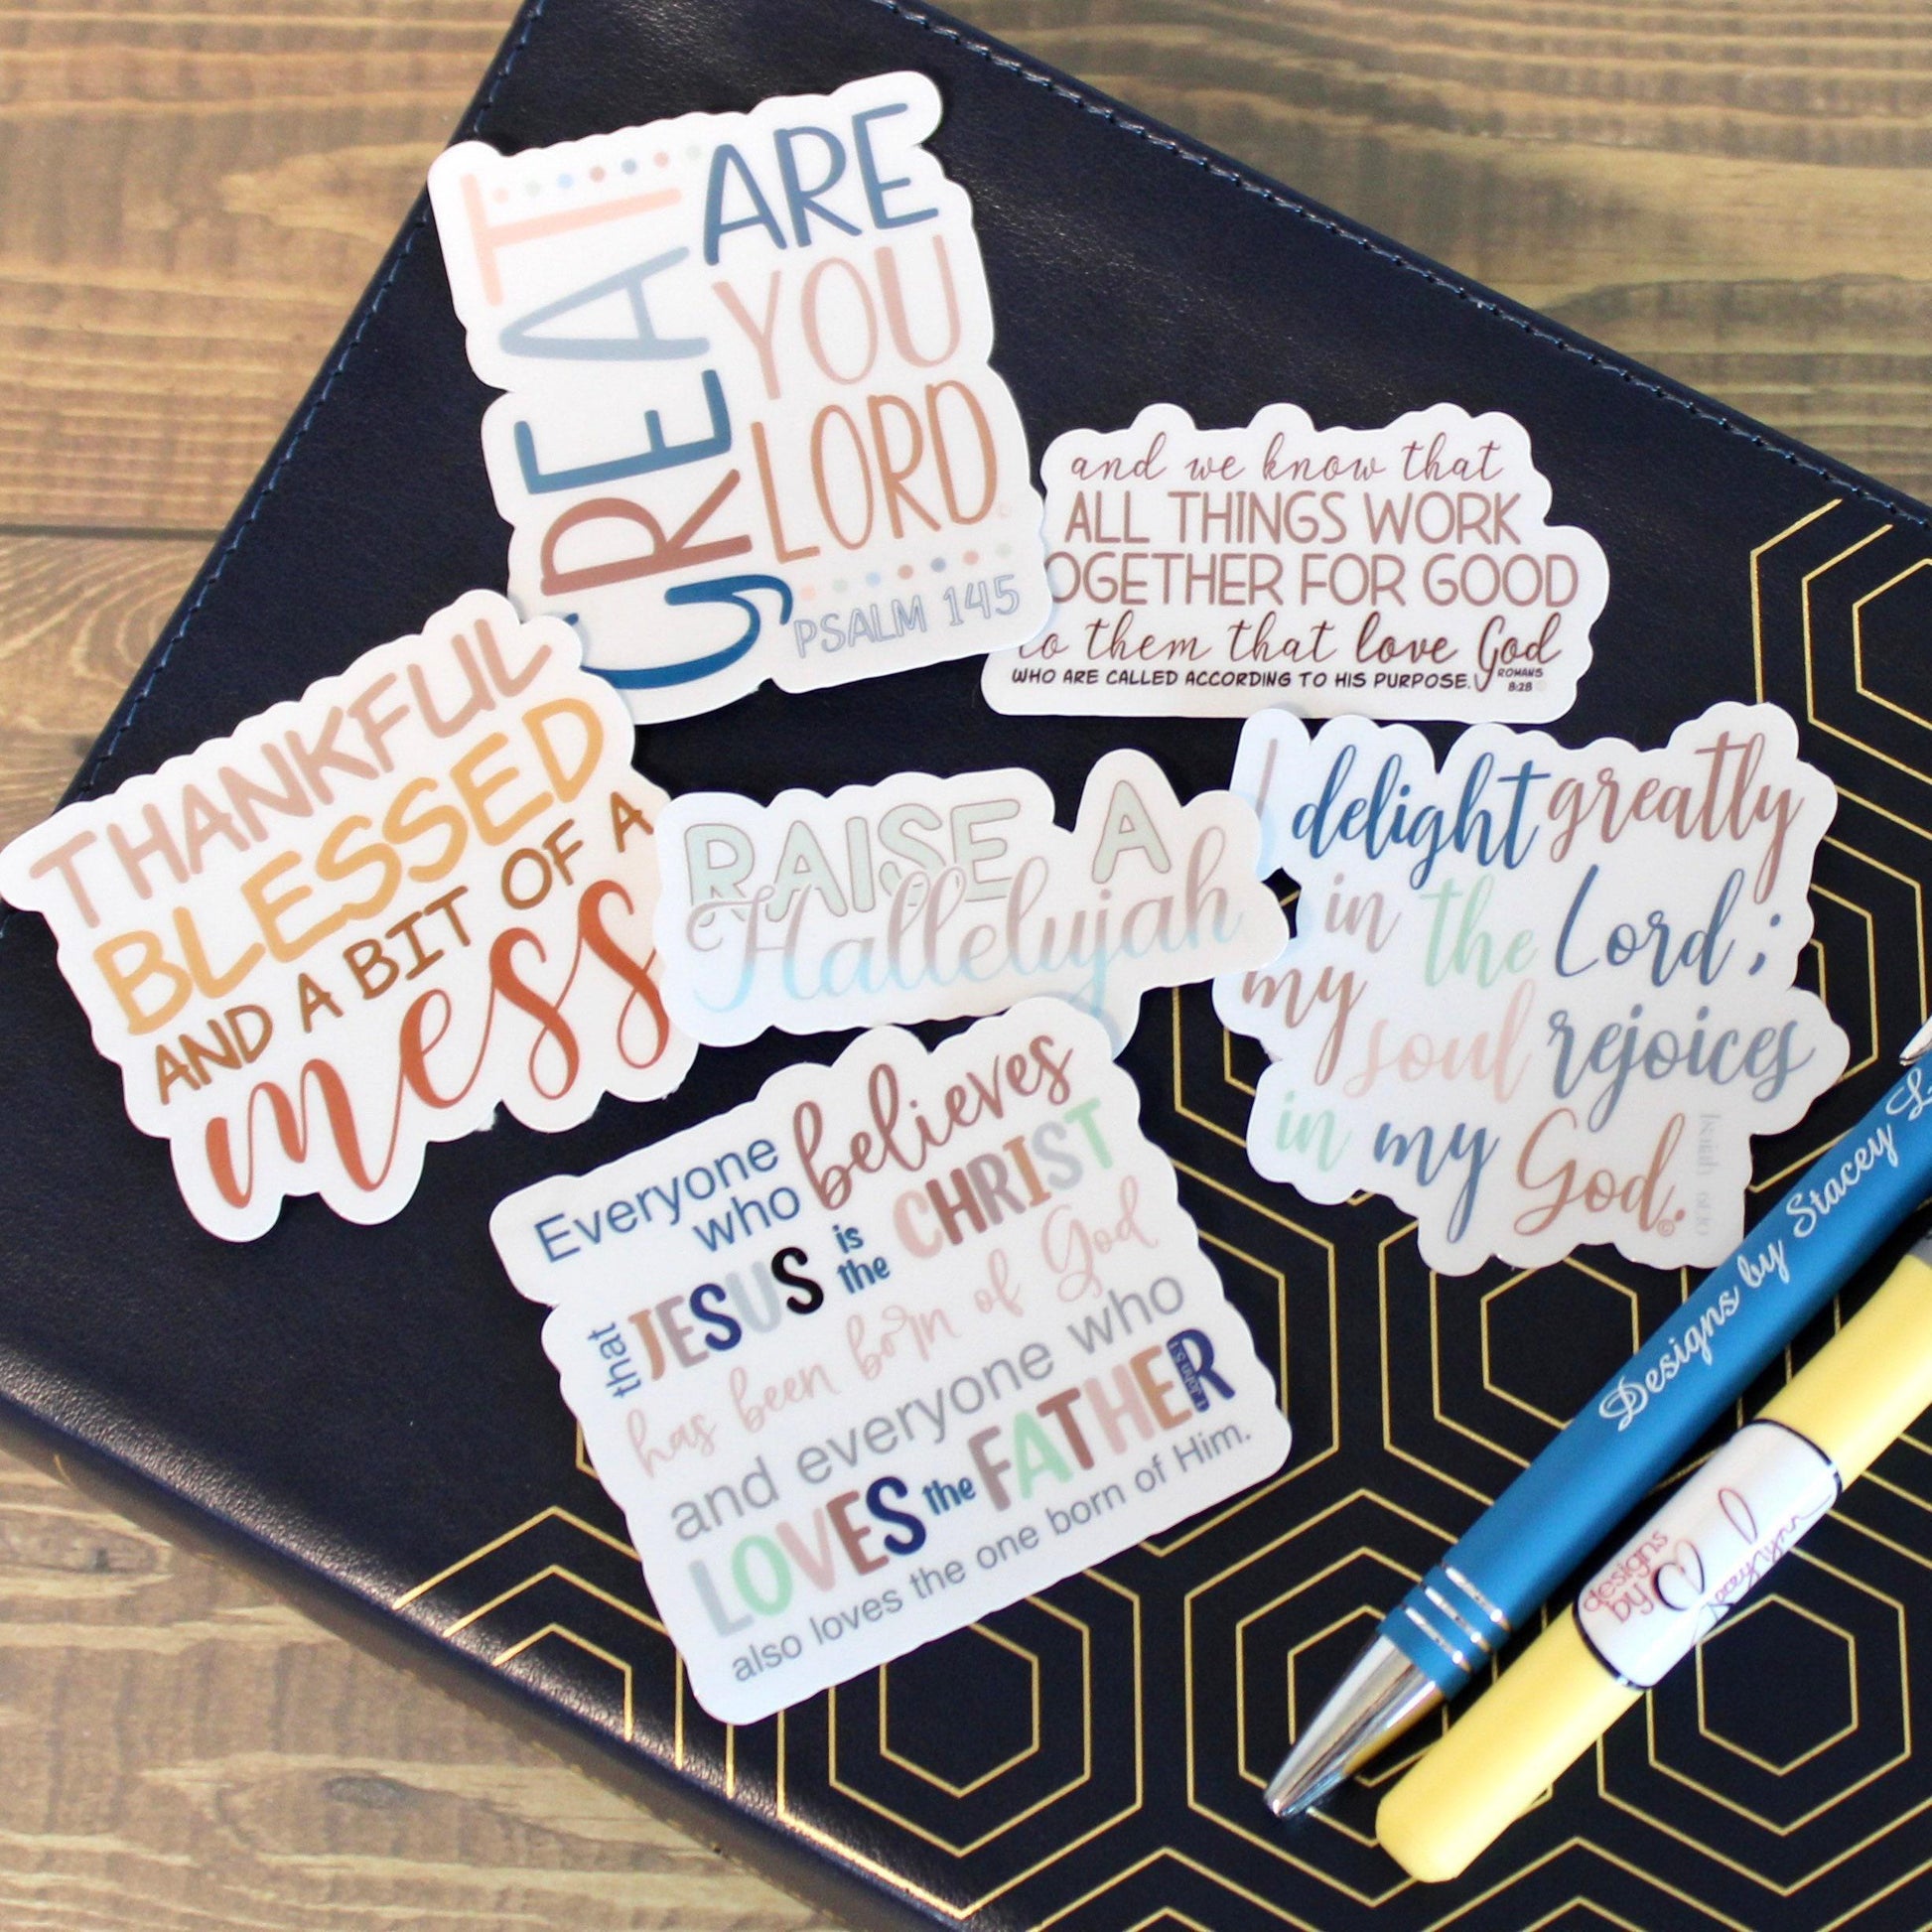 GREAT
ARE
YOU
LORD
PSALM 145
and we know that
ALL THINGS WORK
OGETHER FOR GOOD
to them that love God
WHO ARE CALLED ACCORDING TO HIS PURPOSE.
ROMANS
8:28
THANKFUL
BLESSED
AND A BIT OF A
mess
RAISE A
Hallelujah
I delight greatly
in the Lord;
my soul rejoices
in my God.
Everyone
who believes
that JESUS is the CHRIST
has been born of God
and everyone who
LOVES the FATHER
also loves the one born of Him.
Designs by Stacey L
designs
by